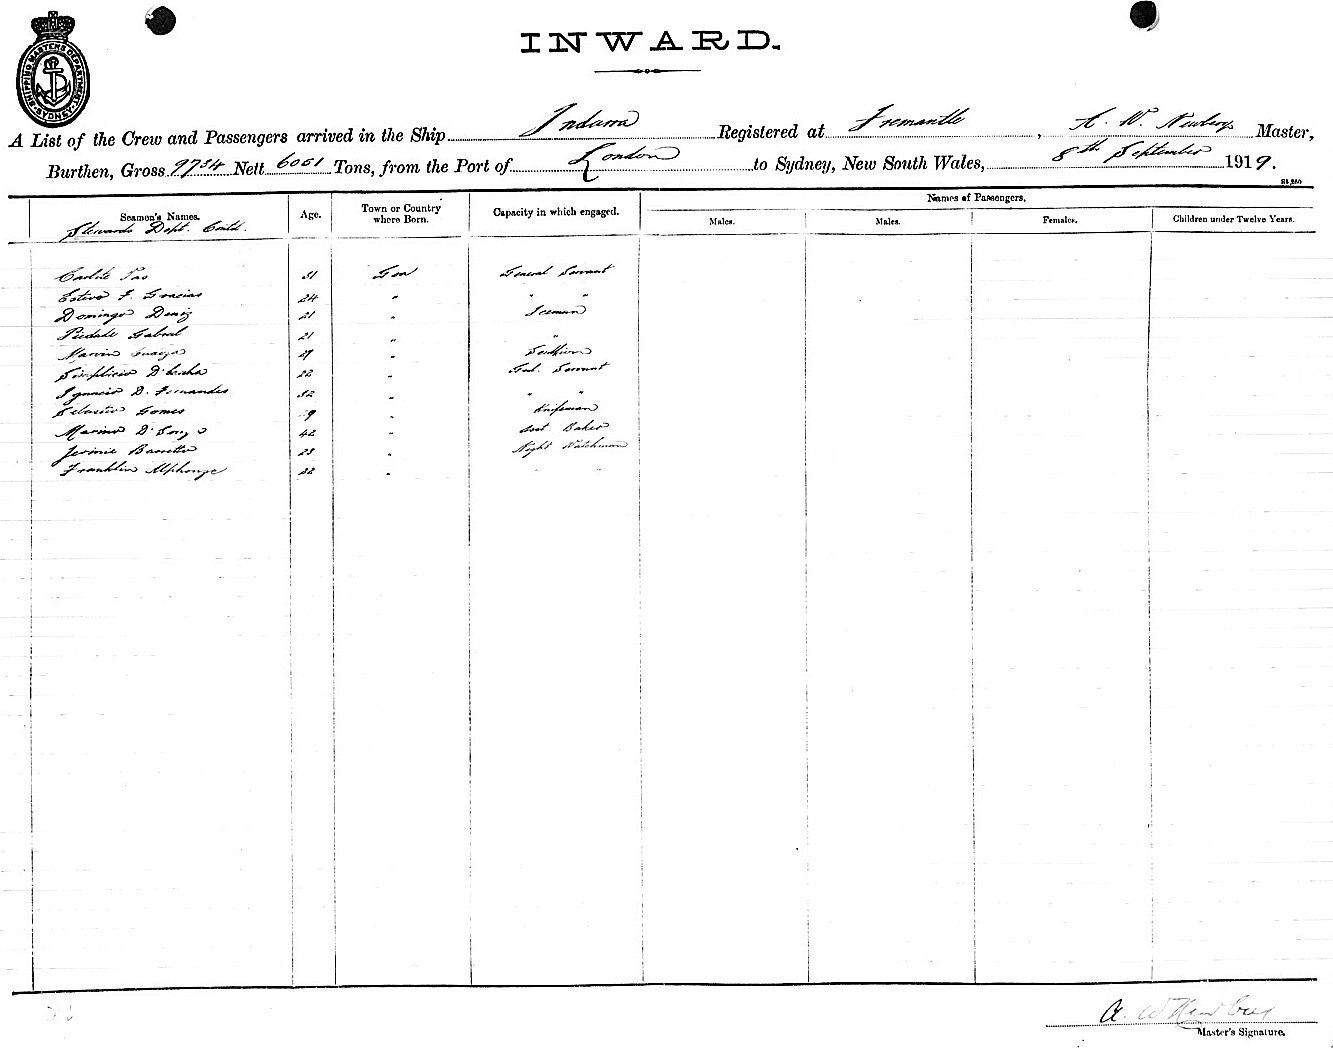 INWARD.
SHIPPING MASTER'S DEPARTMENT SYDNEY
A List of the Crew and Passengers arrived in the Ship Indarra Registered at Fremantle, A. W. Newbery Master,
Burthen, Gross 9734 Nett 6061 Tons, from the Port of London to Sydney, New South Wales, 8th September 1919.
Seamen's Names. Age. Town or Country where Born. Capacity in which engaged. Names of Passengers,
Males. Males. Females. Children under Twelve Years.
Stewards Dept. Contd.
31 Goa General Servant
Estevo F. Gracias 24 " " "
Domingo Deniz 21 " Iceman
Piedade Gabral 21 " "
27 "
Simplicio 22 " Genl. Servant
Ignacio D. Fernandes 32 " " "
Gomes " Knifeman
Marino D'Souza 42 " Baker
Barretto 23 " Night Watchman
Franklin Alphonse 22 " " "
A. W. Newbery
Master's Signature.